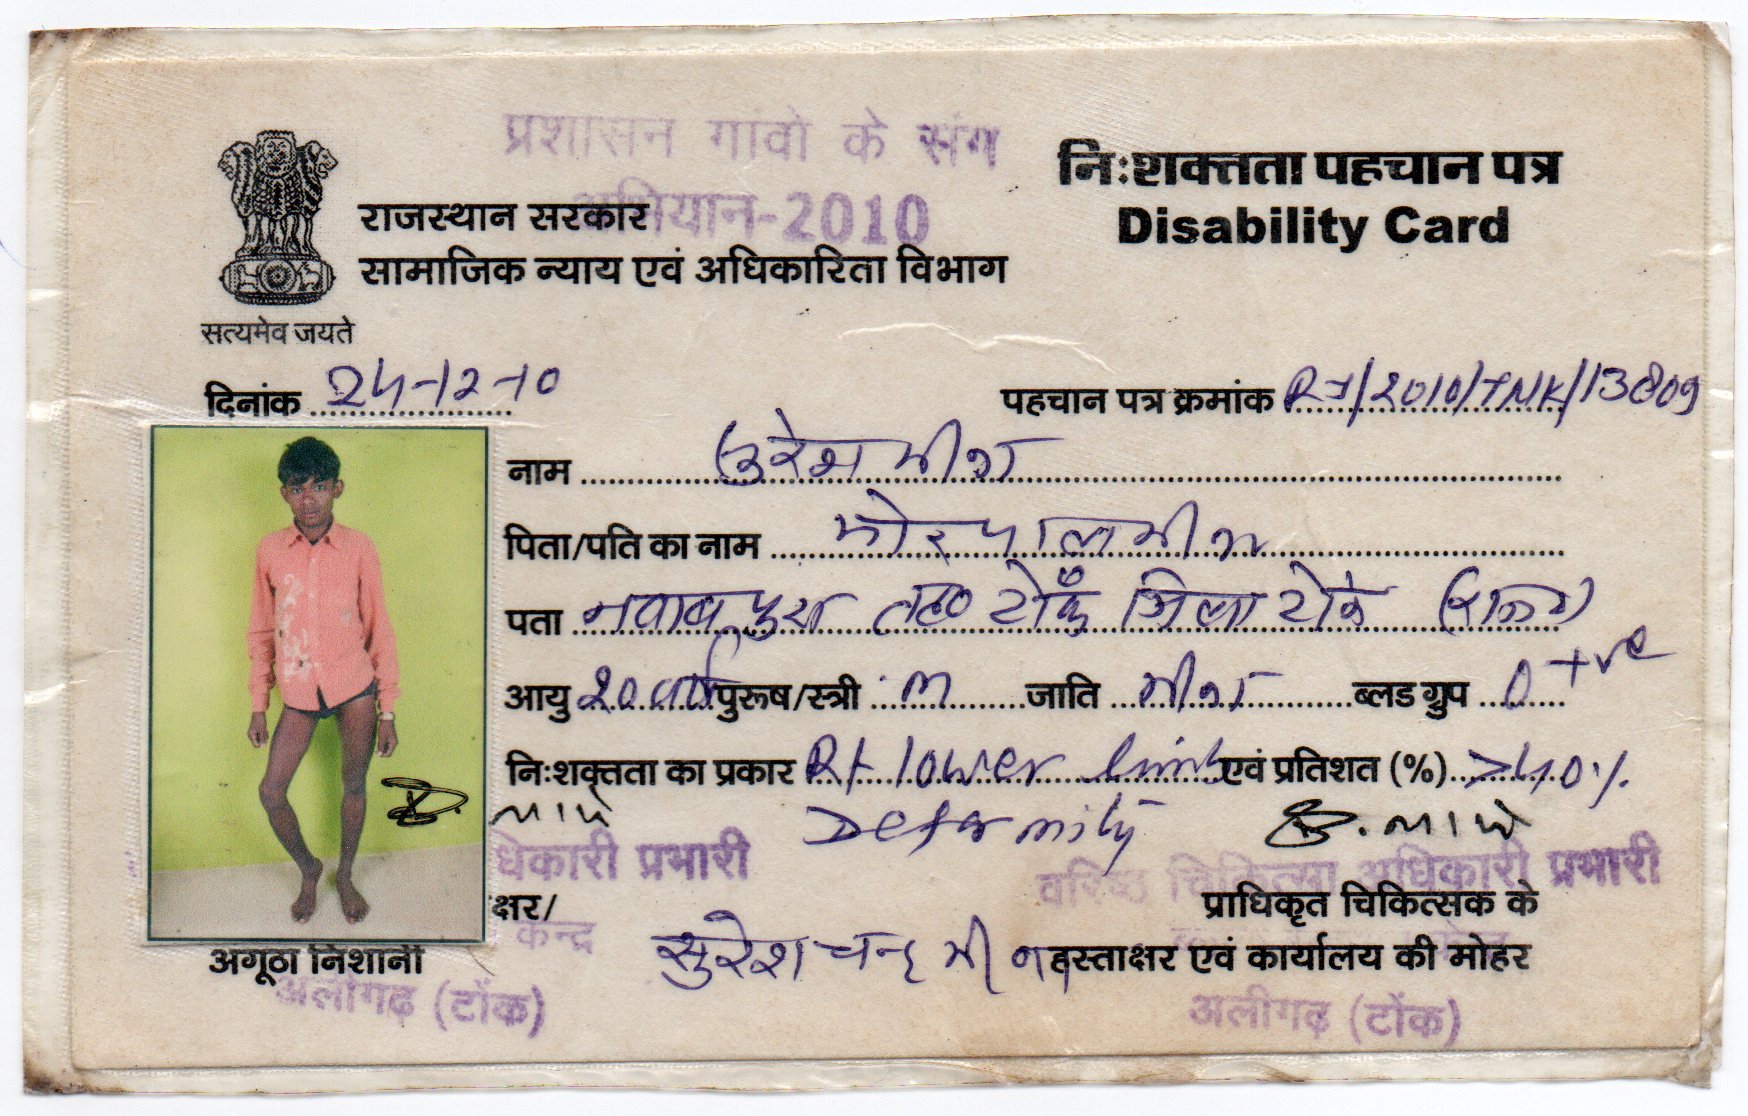 प्रशासन गावो के संग
अभियान-2010
निःशक्तता पहचान पत्र
Disability Card
राजस्थान सरकार
सामाजिक न्याय एवं अधिकारिता विभाग
सत्यमेव जयते
दिनांक 24-12-10
पहचान पत्र क्रमांक RJ/2010/TNK/13809
नाम सुरेश मीणा
पिता/पति का नाम मोरपाल मीणा
पता नवाबपुरा तह० टोंक जिला टोंक (राज०)
आयु 20 वर्ष पुरूष/स्त्री M जाति मीणा ब्लड ग्रुप O +ve
निःशक्तता का प्रकार Rt lower limb एवं प्रतिशत (%) >40%
Deformity
धिकारी प्रभारी
वरिष्ठ चिकित्सा अधिकारी प्रभारी
क्षर/
केन्द्र
प्राधिकृत चिकित्सक के
अगूठा निशानी
सुरेश चन्द मीना
हस्ताक्षर एवं कार्यालय की मोहर
अलीगढ़ (टोंक)
अलीगढ़ (टोंक)